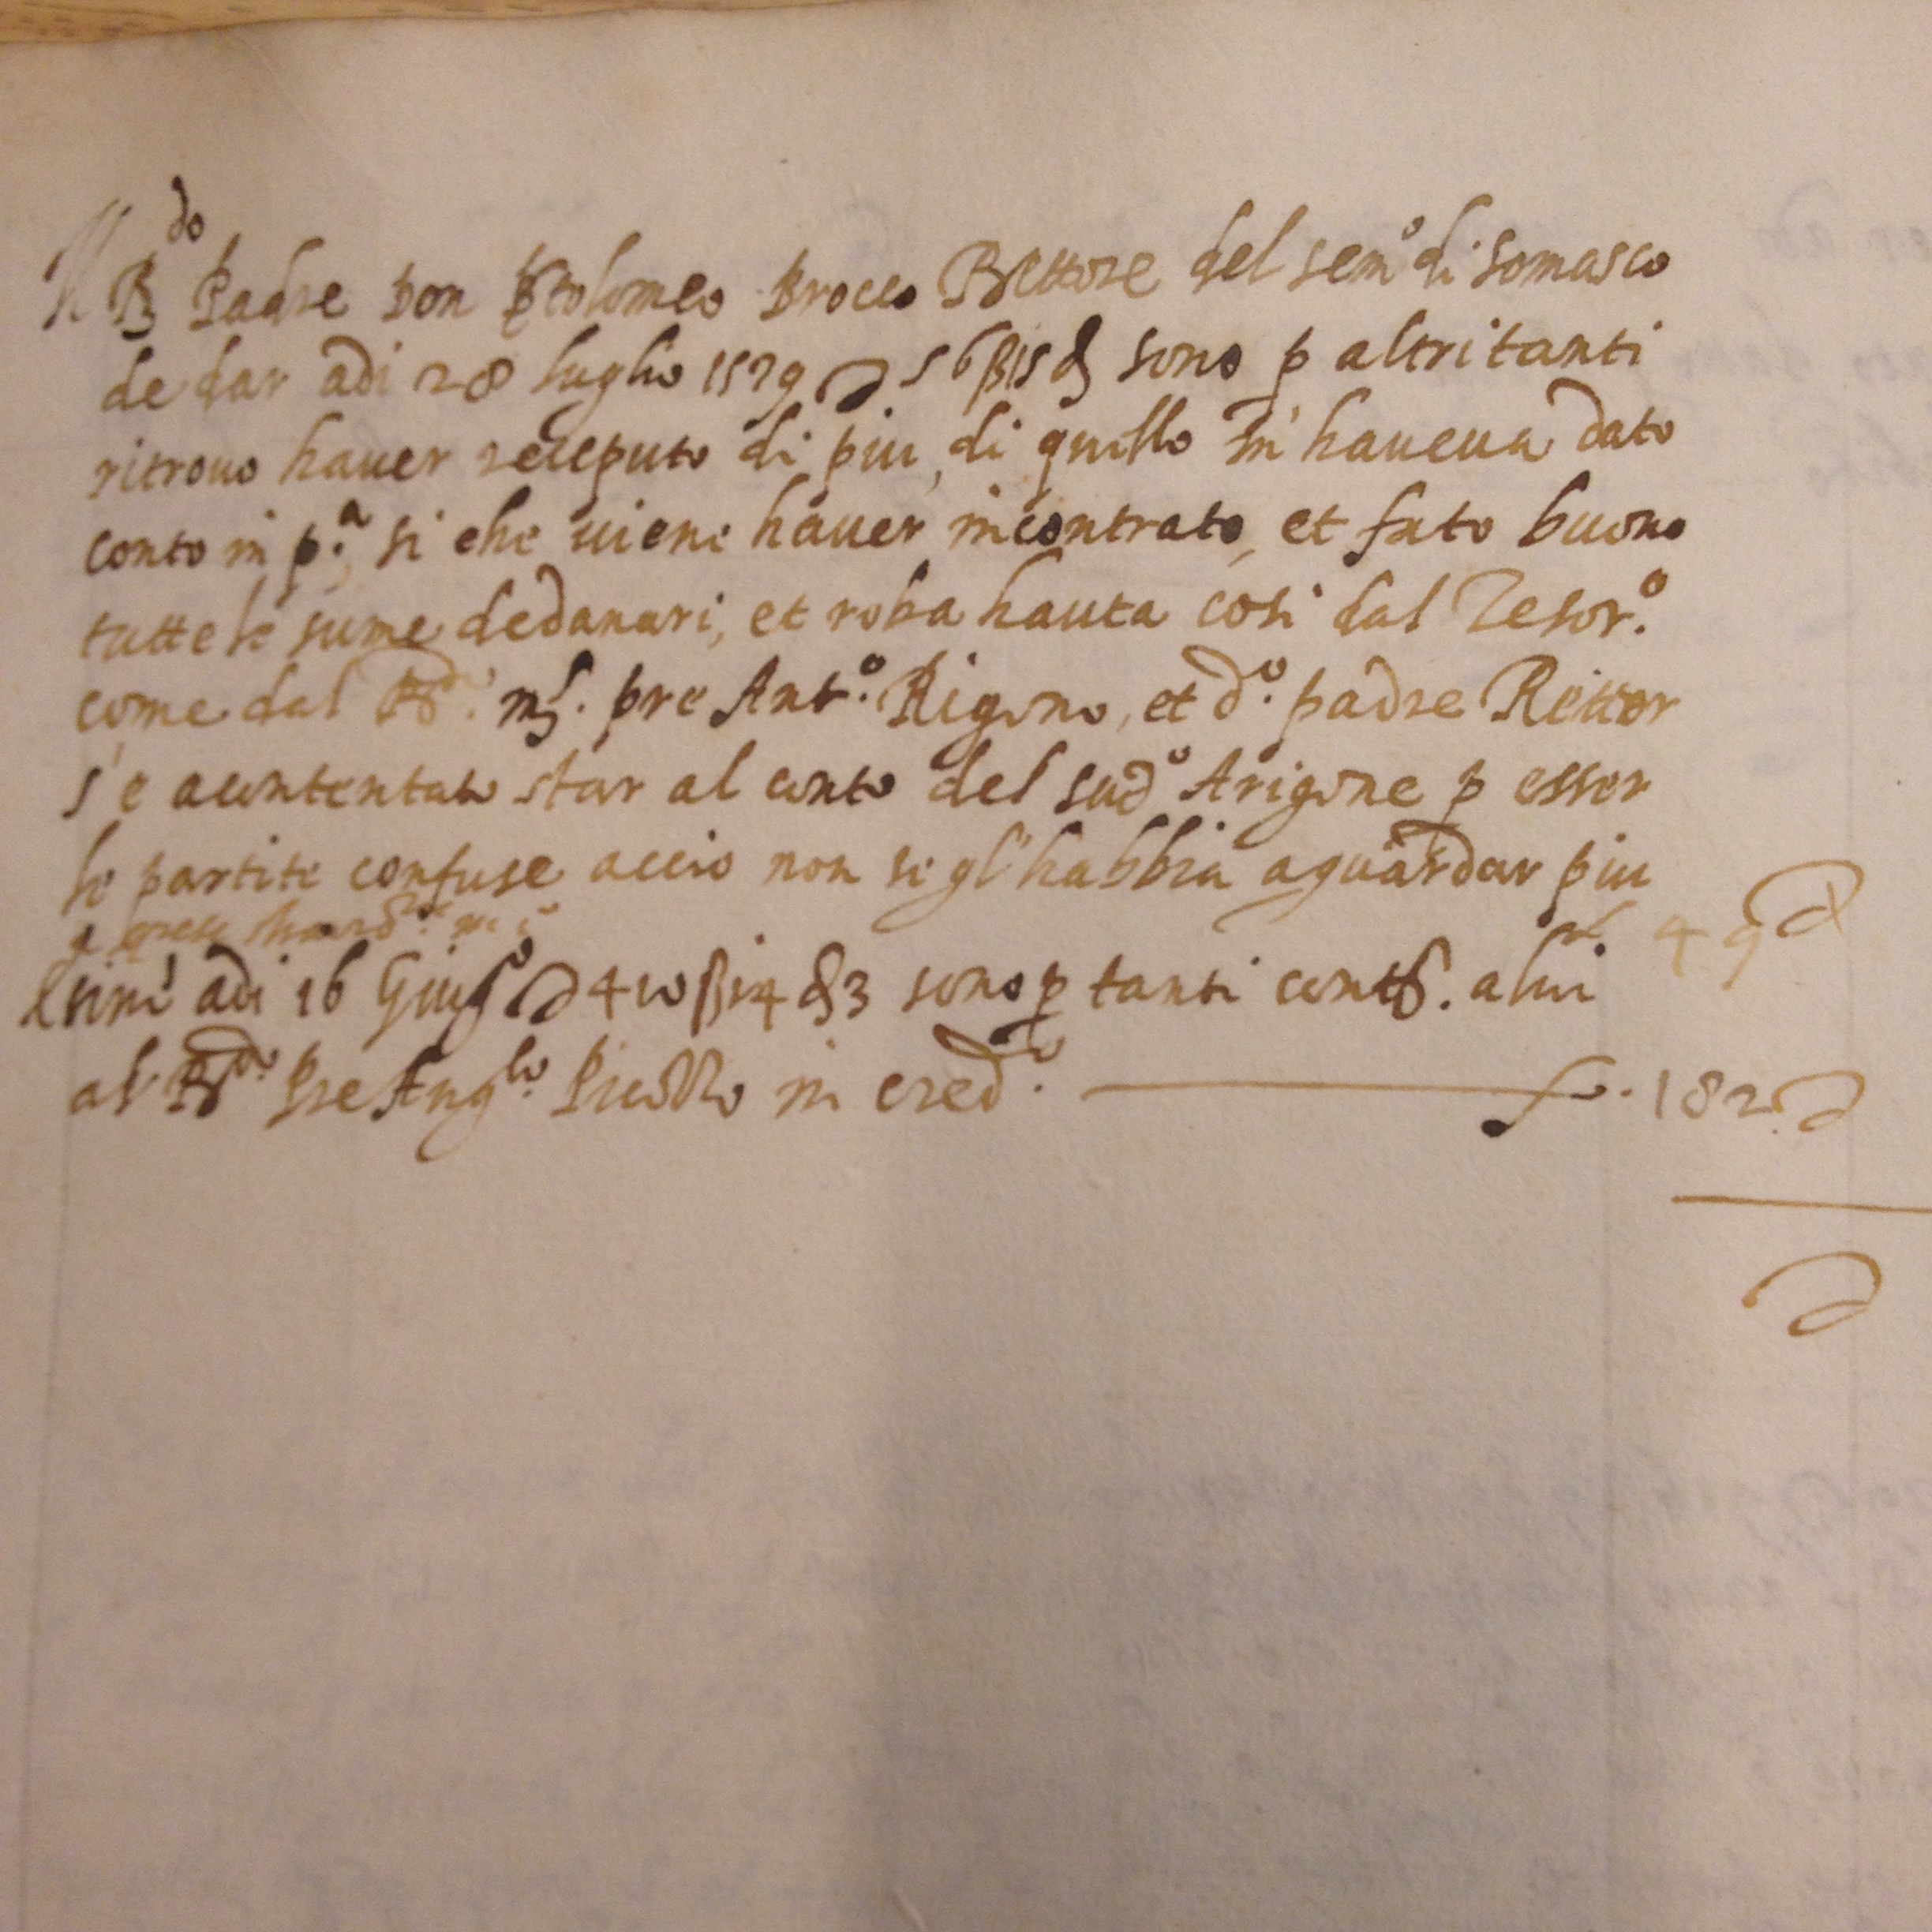 Il R.do Padre Don Btolomeo Brocco Rettore del sem.o di Somasco
de dar adi 28 luglio 1579 56 β 15 sono p altritanti
ritrovo haver receputo di piu, di quello m'haveva dato
conto in p.a, si che viene haver incontrato, et fato buono
tutte le sume dedanari, et roba hauta cosi dal Tesor.o
come dal R.do ms. pre Ant.o Rigono, et d.o padre Rettor
s'e acontentato star al conto del sud.o Arigone p esser
le partite confuse accio non se gl'habbia aguardar piu
49
adi 16 Giug.o 410 β 14 3 sono p tanti alui
al R.do Pre Ang.lo in cred.o f.o 182